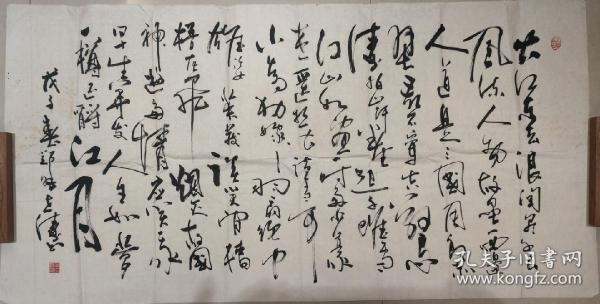 大江东去浪淘尽千古
风流人物故垒西边
人道是三国周郎赤
壁乱石穿空惊
涛拍岸卷起千堆雪
江山如画一时多少豪
杰遥想公瑾当年
小乔初嫁了羽扇纶巾
雄姿英发谈笑间樯
橹灰飞烟灭故国
神游多情应笑我
早生华发人生如梦
一樽还酹江月
戊子春
孔夫子旧书网